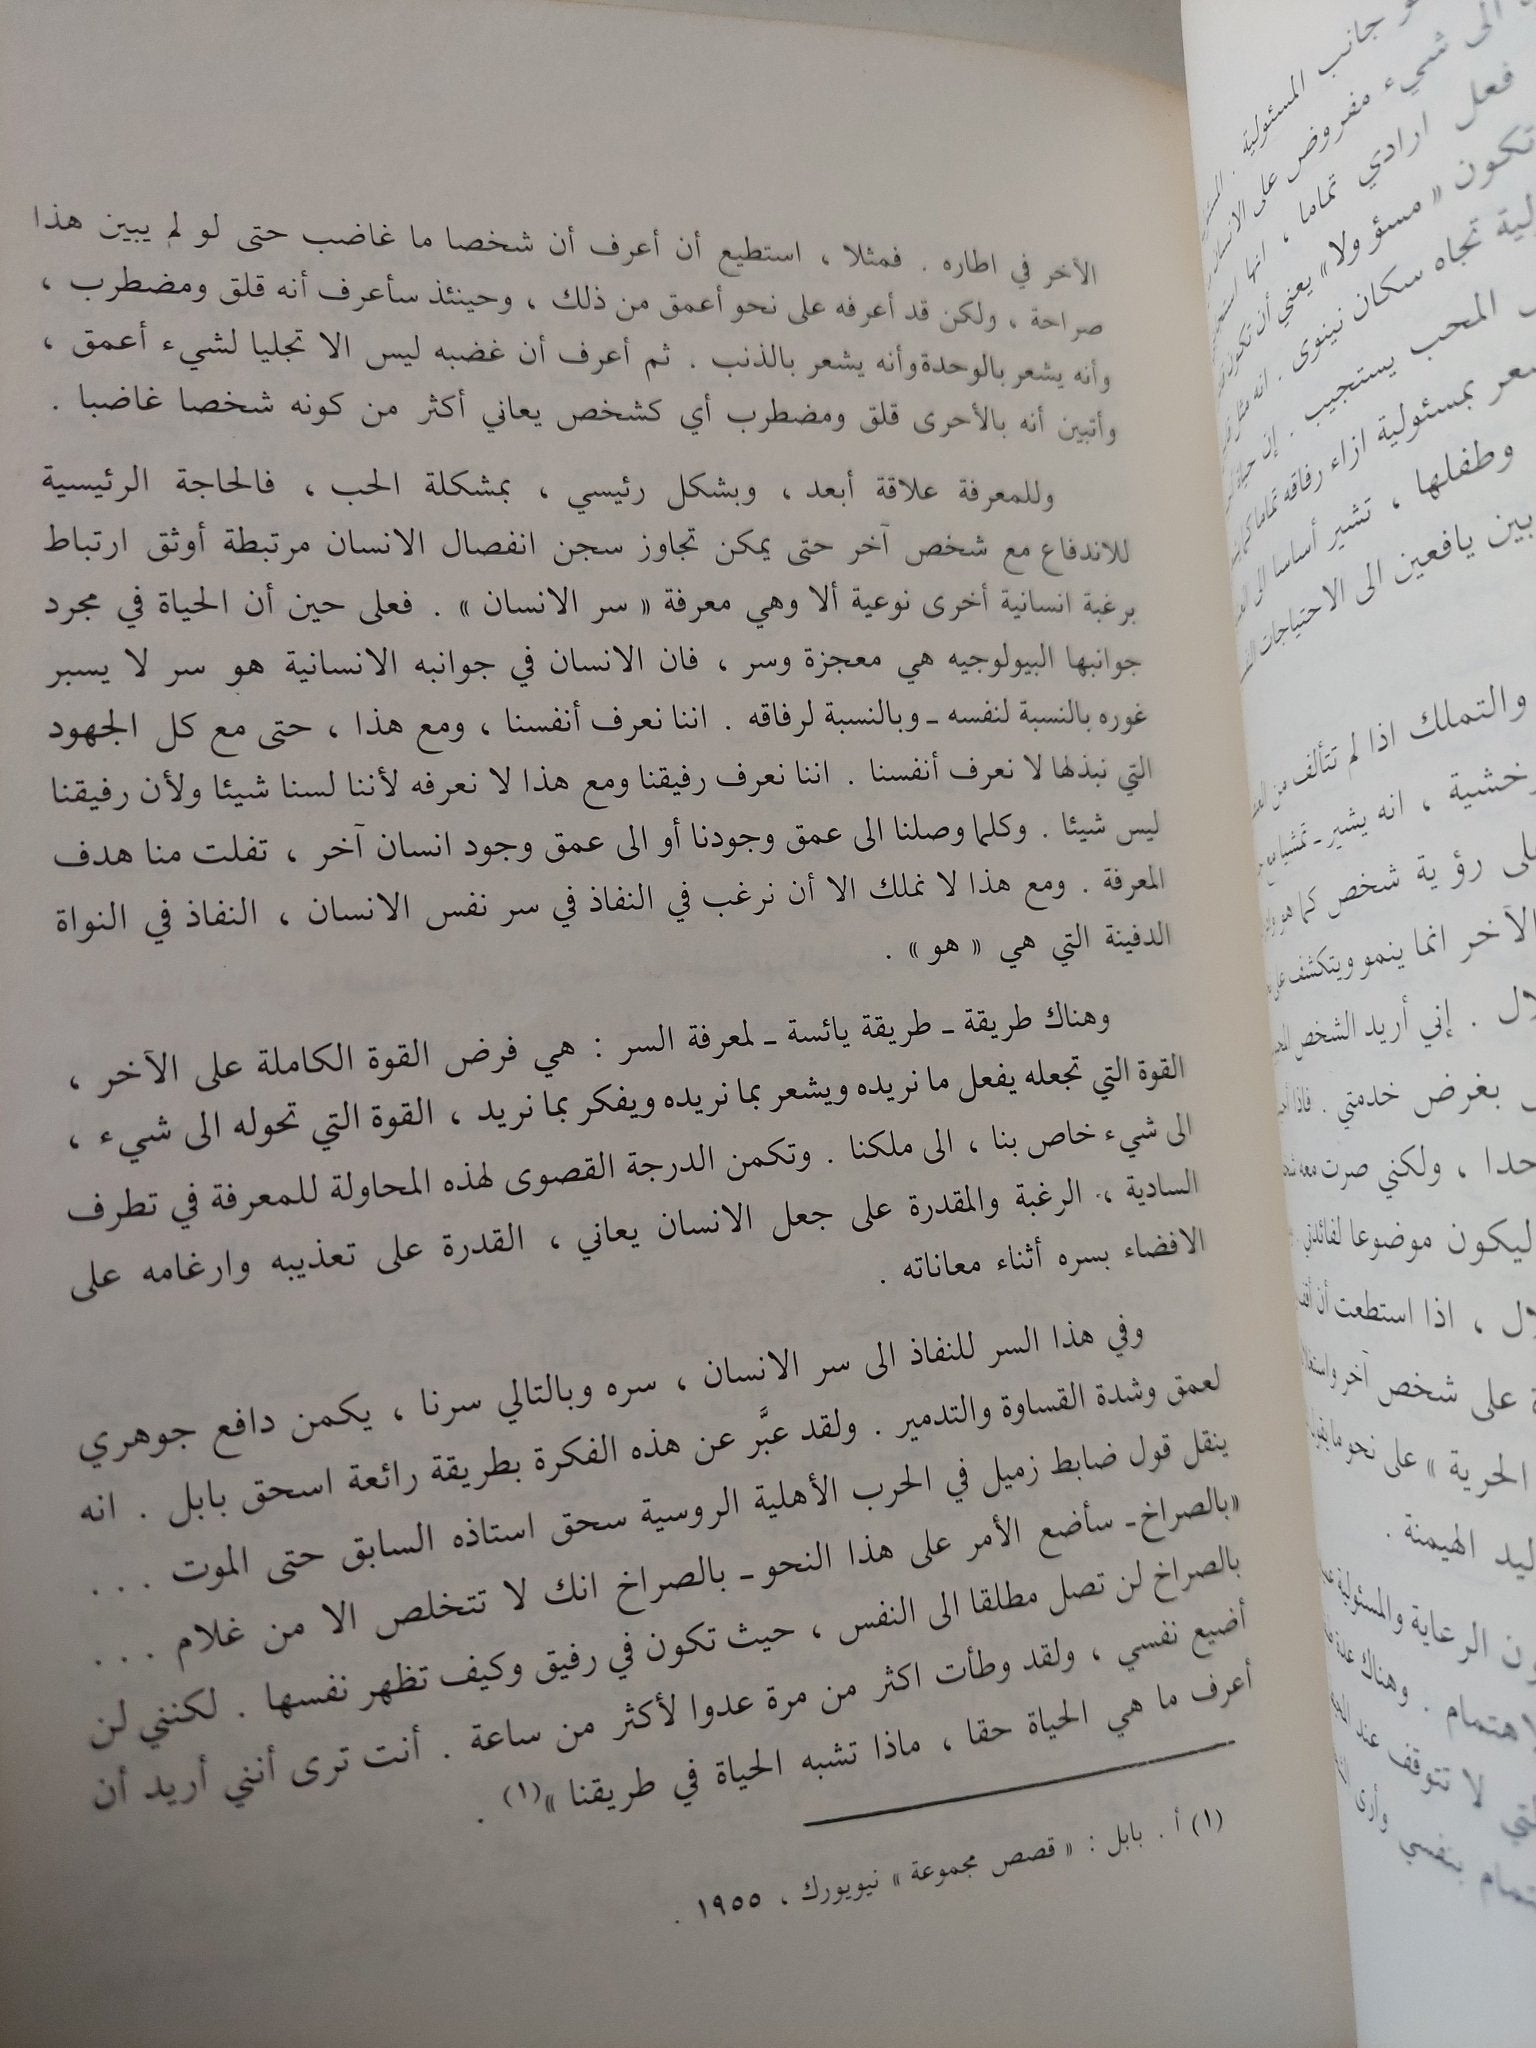 الآخر في اطاره . فمثلا ، استطيع أن أعرف أن شخصا ما غاضب حتى لو لم يبين هذا
صراحة ، ولكن قد أعرفه على نحو أعمق من ذلك ، وحينئذ سأعرف أنه قلق ومضطرب ،
وأنه يشعر بالوحدة وأنه يشعر بالذنب . ثم أعرف أن غضبه ليس الا تجليا لشيء أعمق ،
وأتبين أنه بالأحرى قلق ومضطرب أي كشخص يعاني أكثر من كونه شخصا غاضبا .
وللمعرفة علاقة أبعد ، وبشكل رئيسي ، بمشكلة الحب ، فالحاجة الرئيسية
للاندفاع مع شخص آخر حتى يمكن تجاوز سجن انفصال الانسان مرتبطة أوثق ارتباط
برغبة انسانية أخرى نوعية ألا وهي معرفة « سر الانسان » . فعلى حين أن الحياة في مجرد
جوانبها البيولوجيه هي معجزة وسر ، فان الانسان في جوانبه الانسانية هو سر لا يسبر
غوره بالنسبة لنفسه ـ وبالنسبة لرفاقه . اننا نعرف أنفسنا ، ومع هذا ، حتى مع كل الجهود
التي نبذلها لا نعرف أنفسنا . اننا نعرف رفيقنا ومع هذا لا نعرفه لأننا لسنا شيئا ولأن رفيقنا
ليس شيئا . وكلما وصلنا الى عمق وجودنا أو الى عمق وجود انسان آخر ، تفلت منا هدف
المعرفة . ومع هذا لا نملك الا أن نرغب في النفاذ في سر نفس الانسان ، النفاذ في النواة
الدفينة التي هي « هو » .
وهناك طريقة ـ طريقة يائسة ـ لمعرفة السر : هي فرض القوة الكاملة على الآخر ،
القوة التي تجعله يفعل ما نريده ويشعر بما نريده ويفكر بما نريد ، القوة التي تحوله الى شيء ،
الى شيء خاص بنا ، الى ملكنا . وتكمن الدرجة القصوى لهذه المحاولة للمعرفة في تطرف
السادية ، الرغبة والمقدرة على جعل الانسان يعاني ، القدرة على تعذيبه وارغامه على
الافضاء بسره أثناء معاناته .
وفي هذا السر للنفاذ الى سر الانسان ، سره وبالتالي سرنا ، يكمن دافع جوهري
لعمق وشدة القساوة والتدمير . ولقد عبَّر عن هذه الفكرة بطريقة رائعة اسحق بابل . انه
ينقل قول ضابط زميل في الحرب الأهلية الروسية سحق استاذه السابق حتى الموت . . .
«بالصراخ ـ سأضع الأمر على هذا النحو ـ بالصراخ انك لا تتخلص الا من غلام . . .
بالصراخ لن تصل مطلقا الى النفس ، حيث تكون في رفيق وكيف تظهر نفسها . لكنني لن
أضيع نفسي ، ولقد وطأت اكثر من مرة عدوا لأكثر من ساعة . أنت ترى أنني أريد أن
أعرف ما هي الحياة حقا ، ماذا تشبه الحياة في طريقنا »(١) .
(١) أ . بابل : « قصص مجموعة » نيويورك ، ١٩٥٥ .
جانب المسئولية .
الى شيء مفروض على الانسان
فعل ارادي تماما ، انها
تكون « مسؤولا» يعني أن تكون
تجاه سكان نينوى . انه مثل
المحب يستجيب . إن حياة
بمسئولية ازاء رفاقه تماما كما
وطفلها ، تشير أساسا الى
بين يافعين الى الاحتياجات
والتملك اذا لم تتألف من
، انه يشير ـ تمشيا مع
رؤية شخص كما هو
الآخر انما ينمو ويتكشف على
. إني أريد الشخص
بغرض خدمتي . فاذا
، ولكني صرت معه
ليكون موضوعا لفائدتي .
، اذا استطعت أن أقف
على شخص آخر
الحرية » على نحو ما
الهيمنة .
الرعاية والمسئولية
. وهناك عدة
لا تتوقف عند
بنفسي وأرى